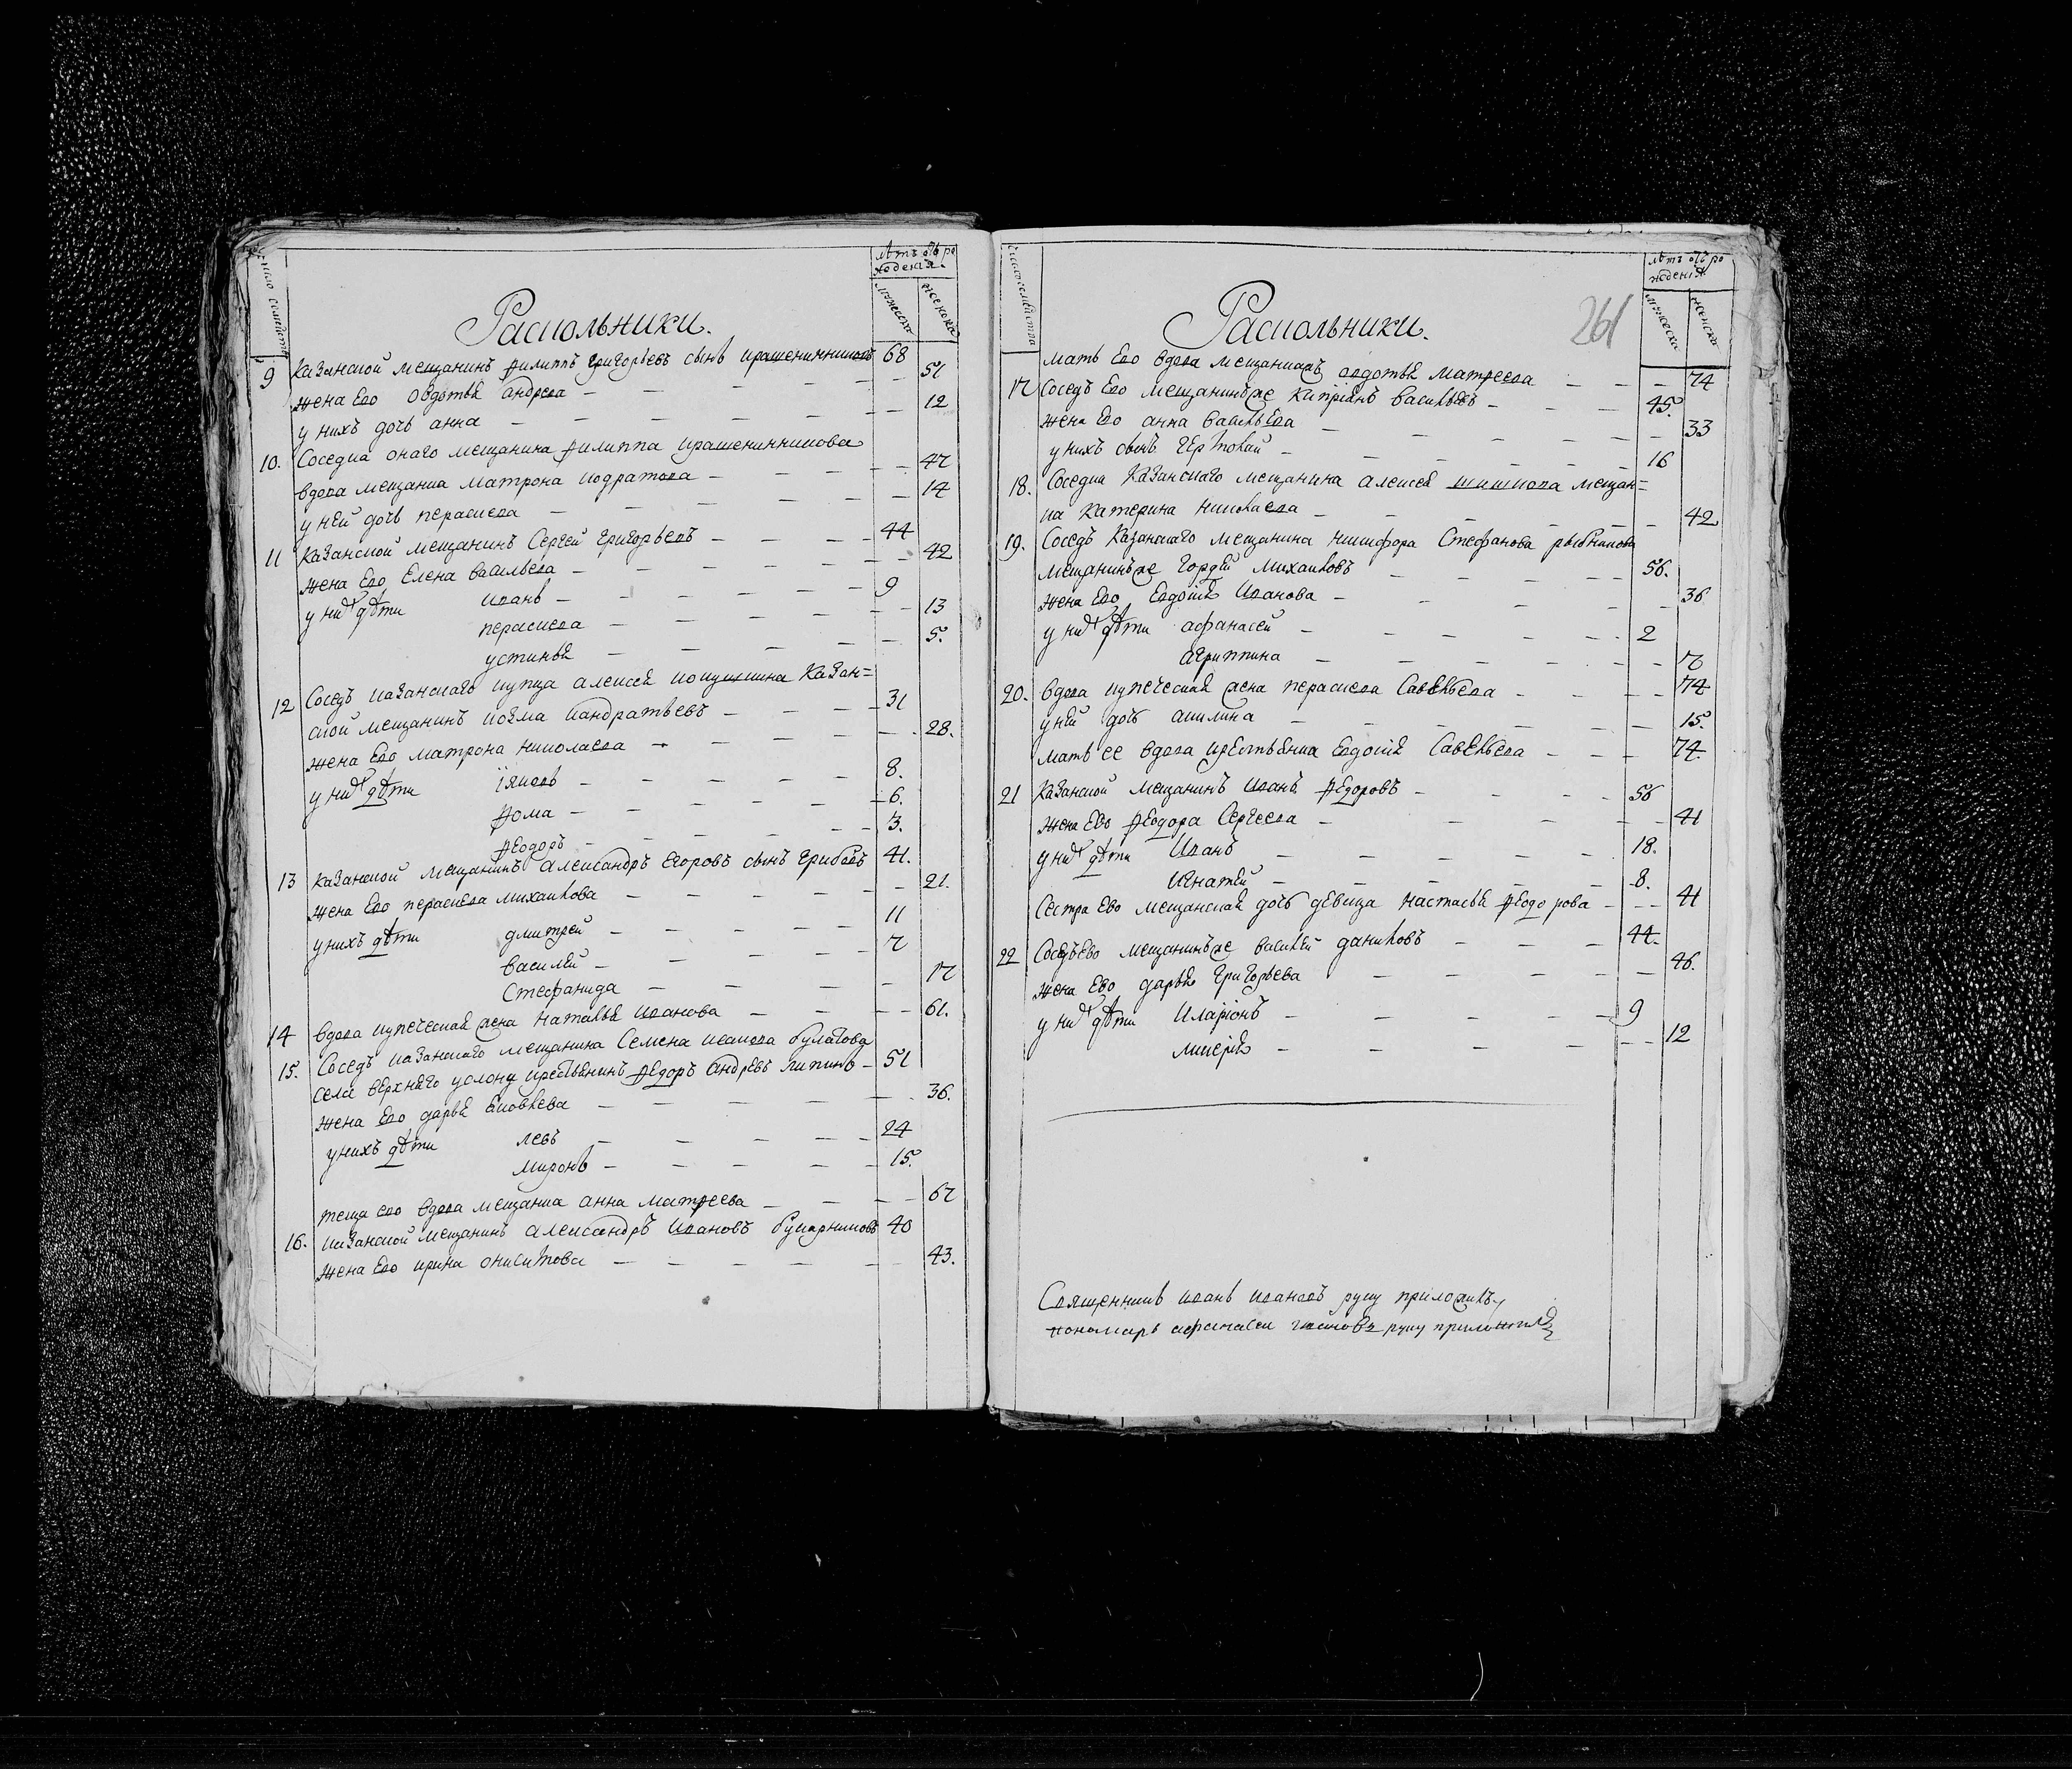 число семействъ
лѣтъ отъ ро
жденія.
мужеска
женска
Раскольники.
9 казанской мещанинъ филиппъ григорьевъ сынъ крашенинниковъ 68
жена ево овдотья андреева — 51
у нихъ дочь анна — 12
10. Соседка онаго мещанина филиппа крашенинникова
вдова мещанка матрона кодратова — 47
у ней дочь параскева — 14
11 казанской мещанинъ Сергей григорьевъ — 44
жена ево Елена васильева — 42
у них дѣти иванъ — 9
параскева — 13
устинья — 5.
12 Соседъ казанскаго купца алексея Казан=
ской мещанинъ козма кандратьевъ — 31
жена ево матрона николаева — 28.
у них дѣти іяковъ — 8.
фома — 6.
феодоръ — 3.
13 казанской мещанинъ александръ егоровъ сынъ грибовъ 41.
жена ево параскева михаилова — 21.
у нихъ дѣти дмитрей — 11
василей — 7
Стефанида — 17
14 вдова купеческая жена наталья иванова — 61.
15. Соседъ казанскаго мещанина Семена исакова булатова
села верхняго услону крестьянинъ федоръ андревъ пипинъ — 51
жена ево дарья яковлева — 36.
у нихъ дѣти левъ — 24
миронъ — 15.
теща ево вдова мещанка анна матфеева — 67
16. казанской мещанинъ александръ ивановъ 40
жена ево ирина аникитова — 43.
число семейства
лѣтъ отъ ро
жденія
мужеска
женска
Раскольники.
261
мать ево вдова мещанская овдотья матфеева — 74
17 Соседъ ево мещанинъ же кипріянъ васильевъ — 45.
жена ево анна васильева — 33
у нихъ сынъ — 16
18. Соседка казанскаго мещанина алексея шишкова мещан=
ка катерина николаева — 42
19. Соседъ казанскаго мещанина никифора Стефанова рыбникова
мещанинъ же гордей михаиловъ — 56.
жена ево Евдокія Иванова — 36
у них дѣти афанасей — 2
агриппина — 7
20. вдова купеческая жена параскева Савельева — 74
у ней дочь акилина — 15.
мать ее вдова крестьянка Евдокія Савельева — 74.
21 казанской мещанинъ иванъ федоровъ — 56
жена Ево феодора Сергеева — 41
у них дѣти Иванъ — 18.
Игнатей — 8.
Сестра ево мещанская дочь девица настасья феодорова — 41
22 Соседъ ево мещанинъ же василей даниловъ — 44.
жена Ево дарья григорьева — 46.
у них дѣти Иларіонъ — 9
— 12
Священникъ иванъ ивановъ руку приложилъ
пономарь афанасеи руку приложилъ